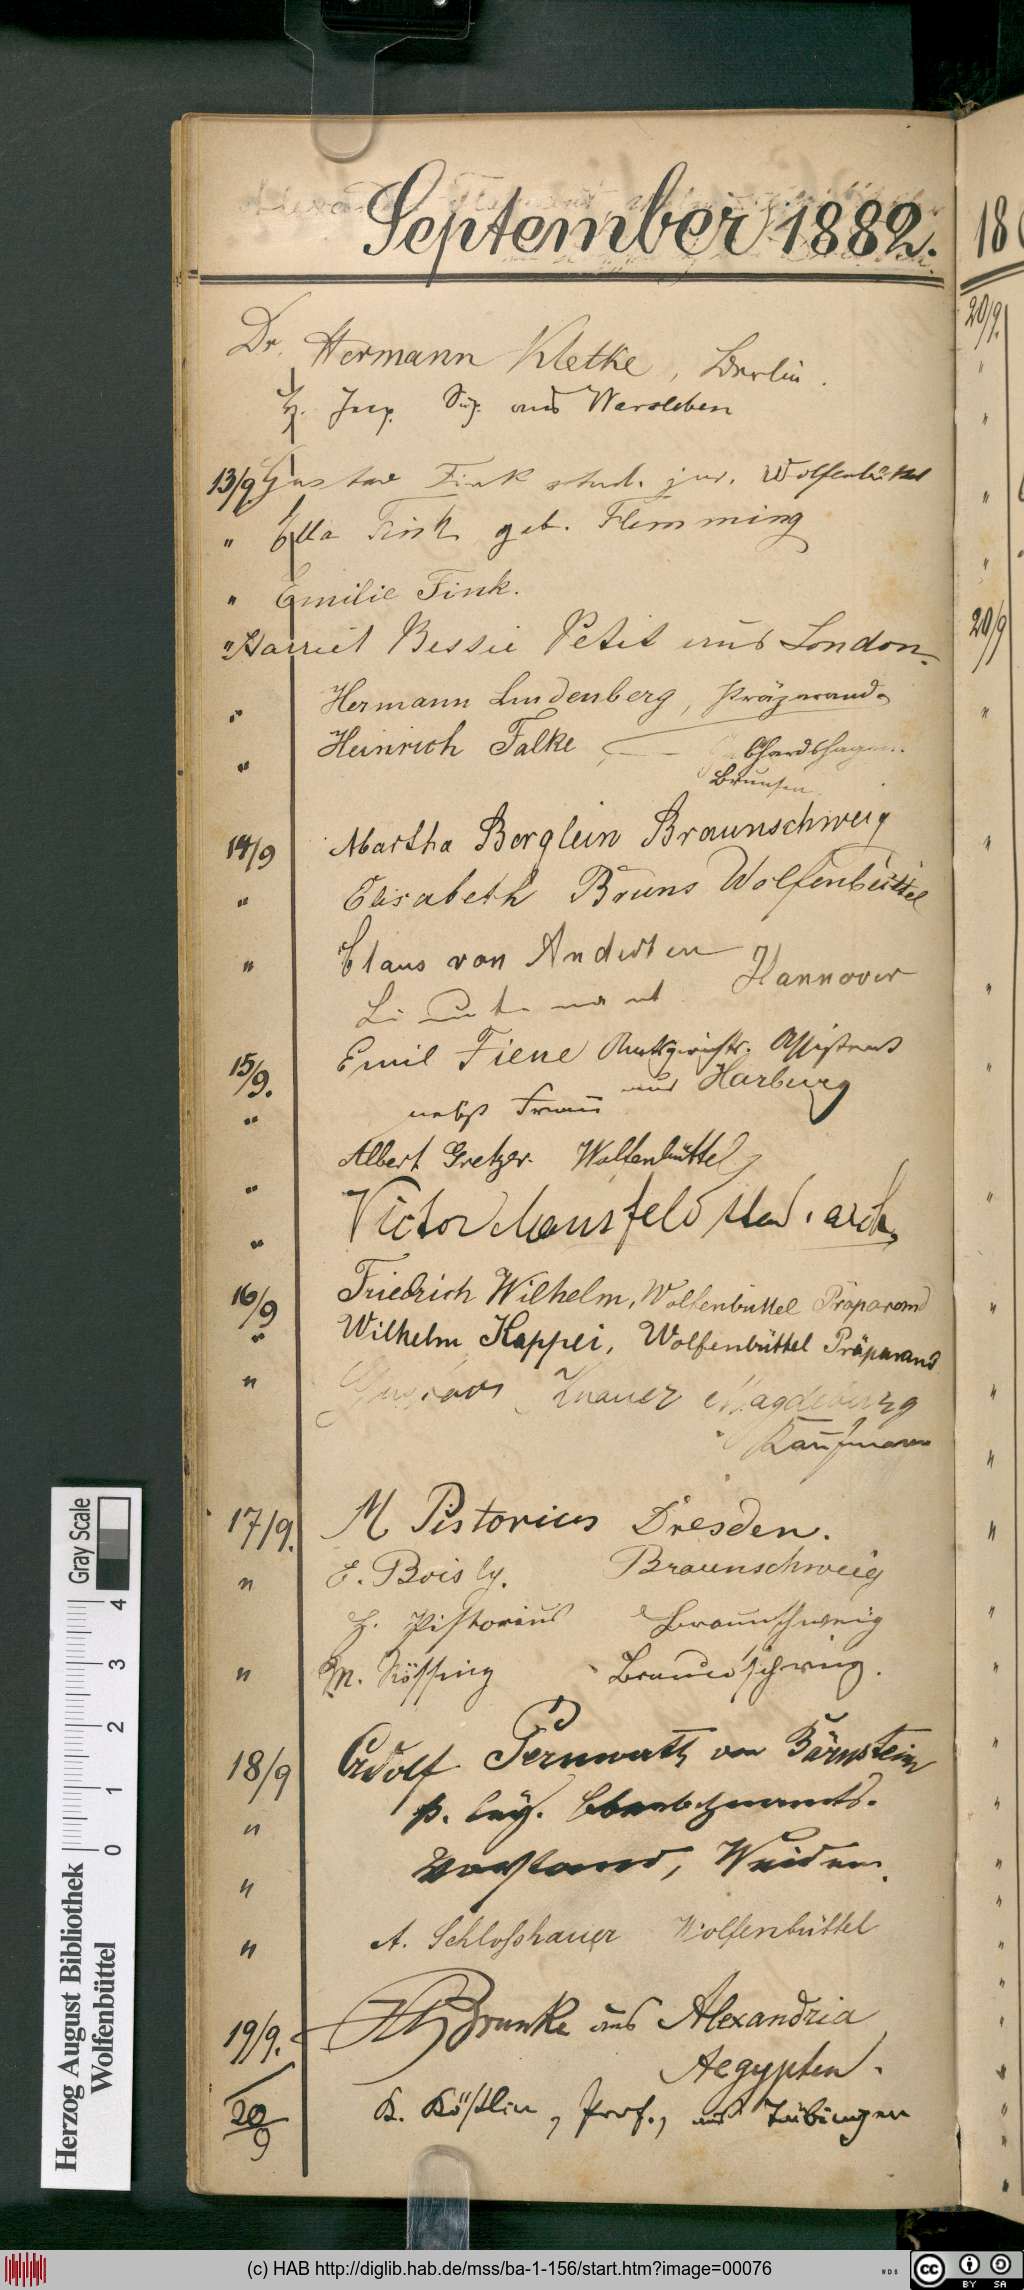 September 1882.
18
Dr. Hermann Kletke, Berlin.
Sup. aus Warsleben
13/9 Gustav Fink stud. jur. Wolfenbüttel
" Ella Fink geb. Flemming
" Emilie Fink.
" Harriet Bessie Petit aus London.
" Hermann Lindenberg, Präparand.
" Heinrich Falke
Brunsen
14/9 Martha Berglein Braunschweig
" Elisabeth Bruns Wolfenbüttel
" Claus von Anderten Hannover
Lieutenant
15/9. Emil Fiene Amtsgerichts-Assistent
" nebst Frau aus Harburg
" Albert Gretzer. Wolfenbüttel
" Victor Mansfeld stud. arch.
16/9 Friedrich Wilhelm, Wolfenbüttel Präparand
" Wilhelm Kappei, Wolfenbüttel Präparand
" Gustav Knauer Magdeburg
Kaufmann
17/9. M Pistorius Dresden.
" E. Boisly. Braunschweig
H. Pistorius Braunschweig
" M. Kössing Braunschweig.
18/9 Adolf Pernwerth von Bärnstein
"
" Vorstand, Weiden.
" A. Schloßhauer Wolfenbüttel
19/9. Brunke aus Alexandria
Aegypten.
20/9 K. Köstlin, Prof., aus Tübingen
20/9.
20/9
Gray Scale
0 1 2 3 4
Herzog August Bibliothek
Wolfenbüttel
(c) HAB http://diglib.hab.de/mss/ba-1-156/start.htm?image=00076
WDB
cc BY SA